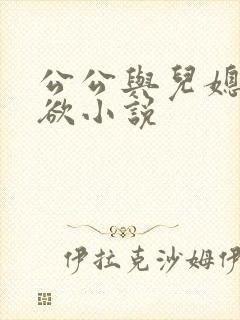 公公與兒媳
欲小説
伊拉克沙姆伊